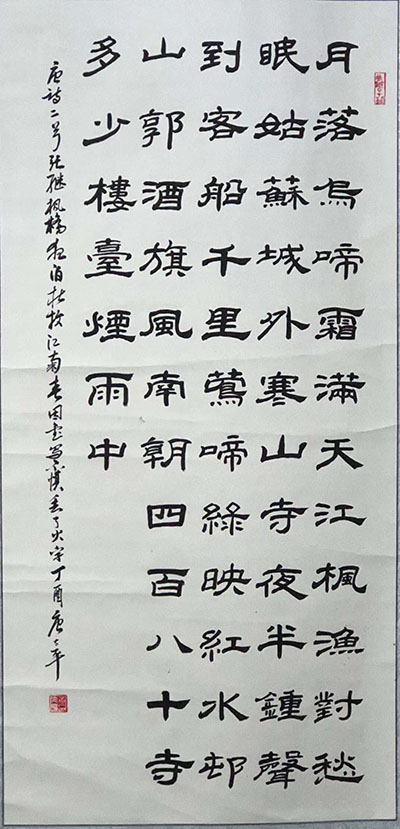 月落烏啼霜滿天江楓漁對愁
眠姑蘇城外寒山寺夜半鍾聲
到客船千里鶯啼綠映紅水邨
山郭酒旗風南朝四百八十寺
多少樓臺煙雨中
唐詩二首张继枫橋夜泊杜牧江南春因慎丢了火字丁酉